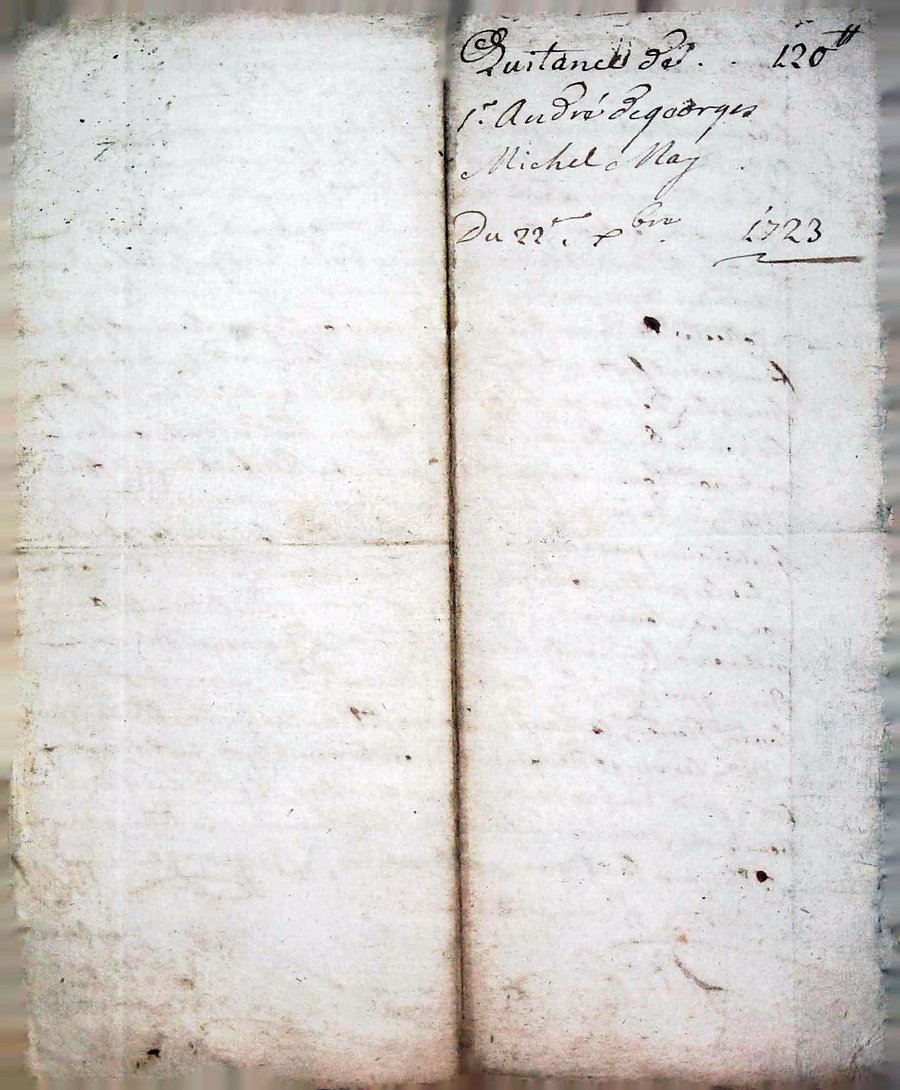 Quitance de . . 120ᵗᵗ
Sr. André degeorges
Michel May
Du 22e. xbre 1723